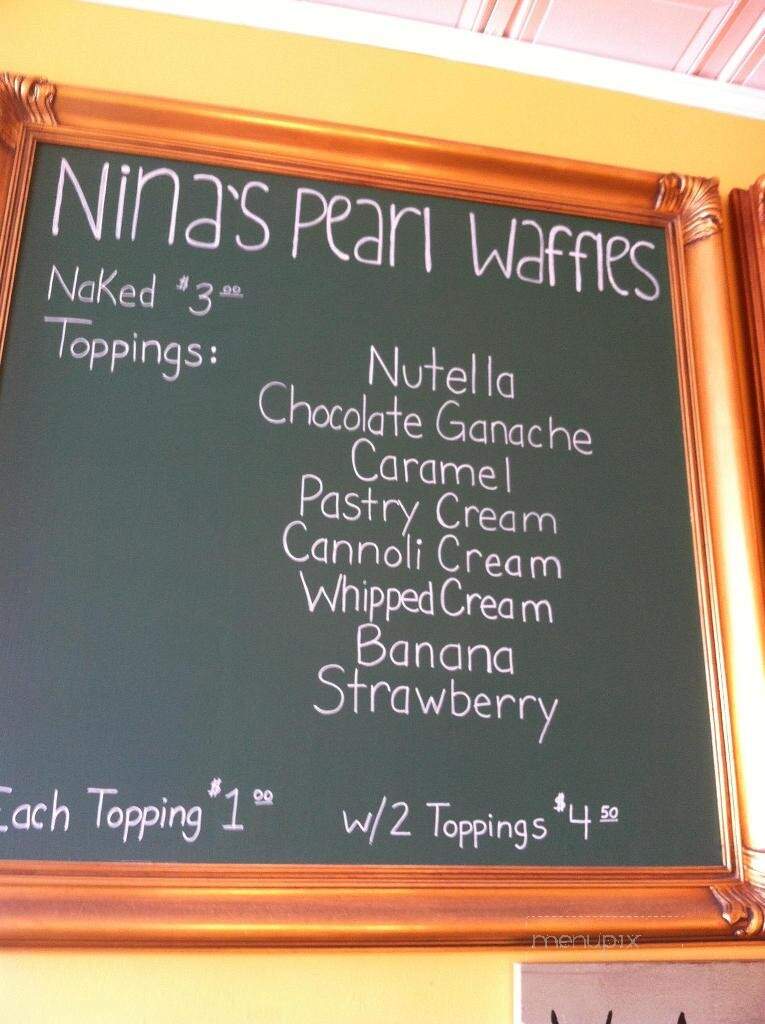 Nina's Pearl Waffles
Naked $3.00
Toppings:
Nutella
Chocolate Ganache
Caramel
Pastry Cream
Cannoli Cream
Whipped Cream
Banana
Strawberry
Each Topping $1.00 w/2 Toppings $4.50
menupix